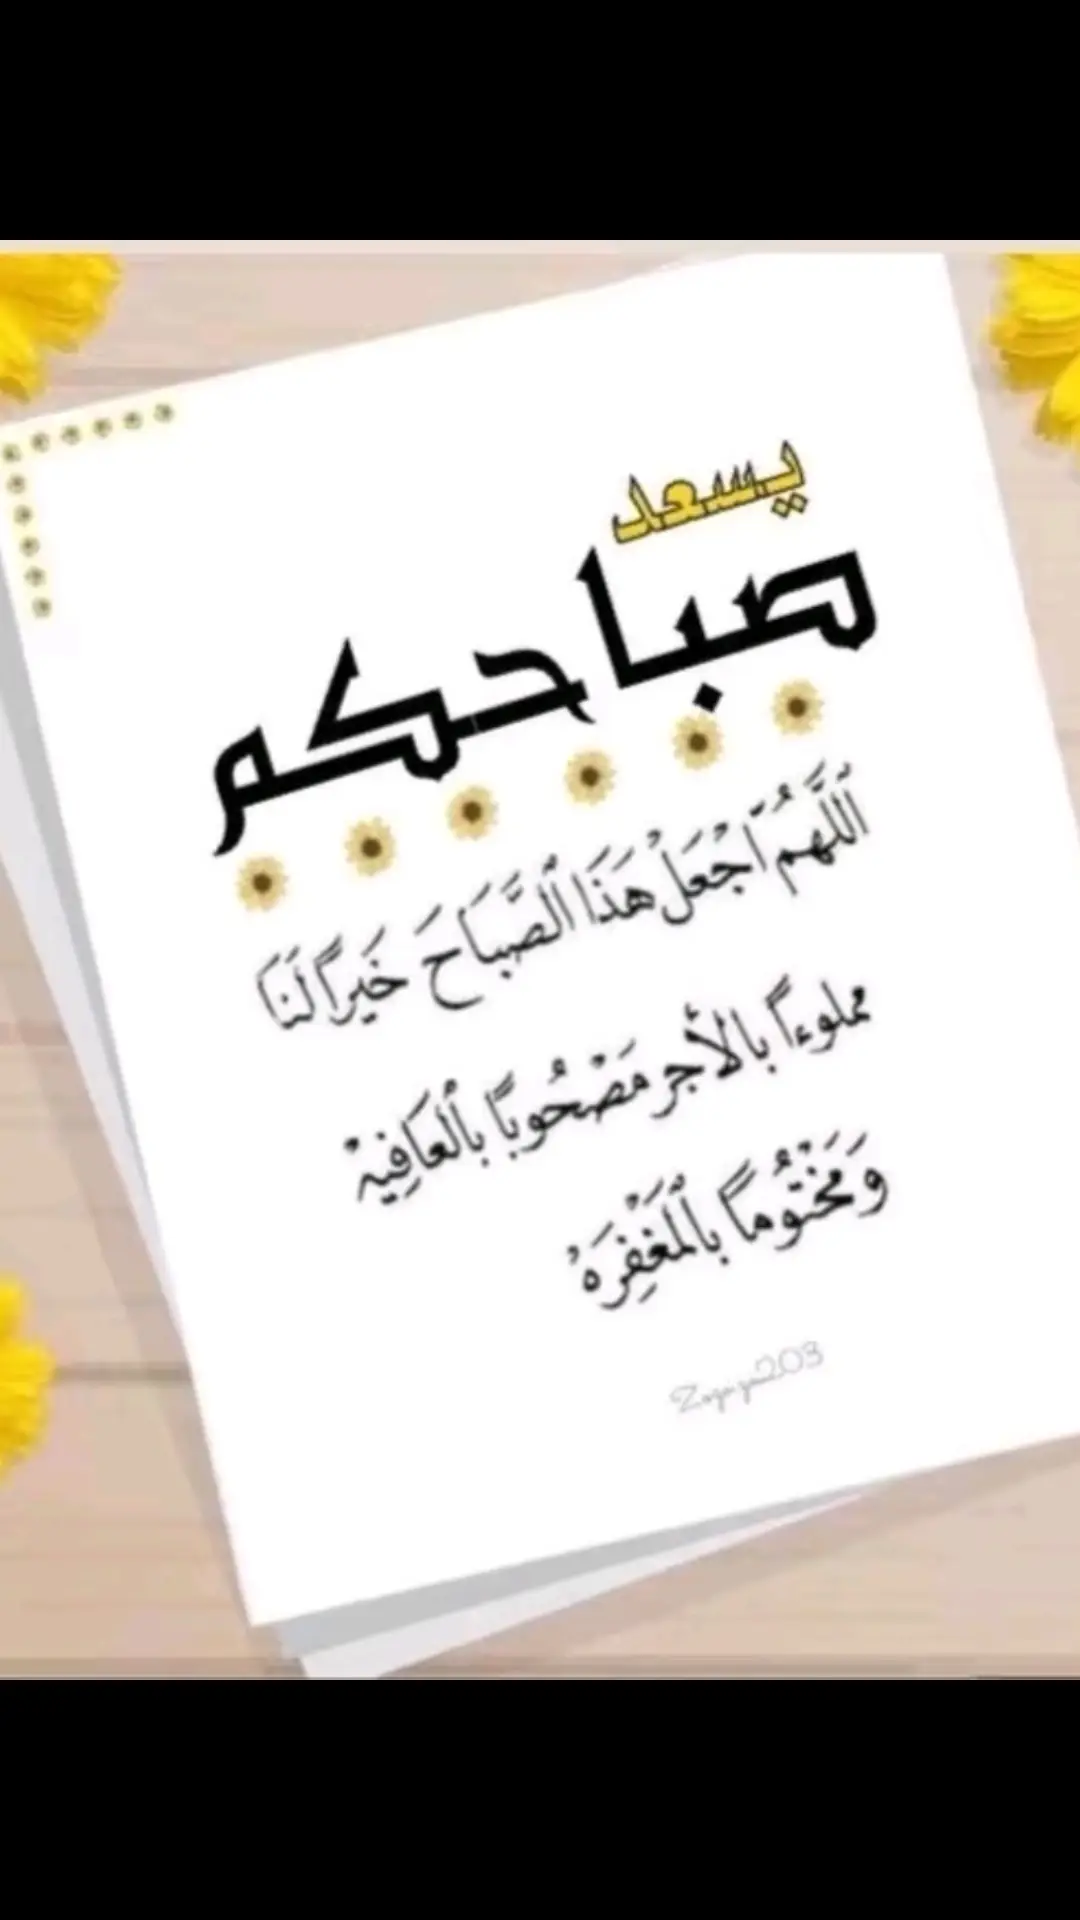 يسعد
صباحكم
اَللَّهُمَّ اَجْعَلْ هَذَا اَلصَّبَاحَ خَيْراً لَنَا
مملوءاً بالأجر مَصْحُوبًا بِالْعَافِيهْ
وَمَخْتُوماً بِالْمَغْفِرَهْ